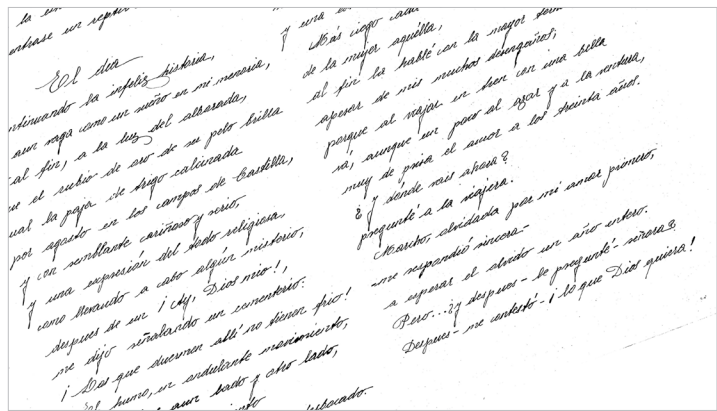 la
entrase un
El dia
continuando la infeliz historia,
aun vaga como un sueño en mi memoria,
al fin, a la luz del alborada,
el rubio de oro de su pelo brilla
la paja de trigo calcinada
por agosto en los campos de Castilla,
y con semblante cariñoso y serio,
y una expresión del todo religiosa,
como llevando a cabo algún misterio,
despues de un ¡Ay, Dios mio!,
me dijo señalando un cementerio:
¡Los que duermen allí no tienen frio!
El humo, en ondulante movimiento,
a un lado y otro lado,
desbocado.
y una
Más ciego
de la mujer aquélla,
al fin la hablé con la mayor
apesar de mis muchos desengaños,
porque al viajar en tren con una bella
vá, aunque un poco al azar y a la ventura,
muy de prisa el amor a los treinta años.
¿Y dónde vais ahora?
pregunté a la viajera.
Marcho, olvidada por mi amor primero,
-me respondió sincera-
a esperar el olvido un año entero.
Pero...¿y despues- le pregunté- señora?
Despues- me contestó- ¡lo que Dios quiera!